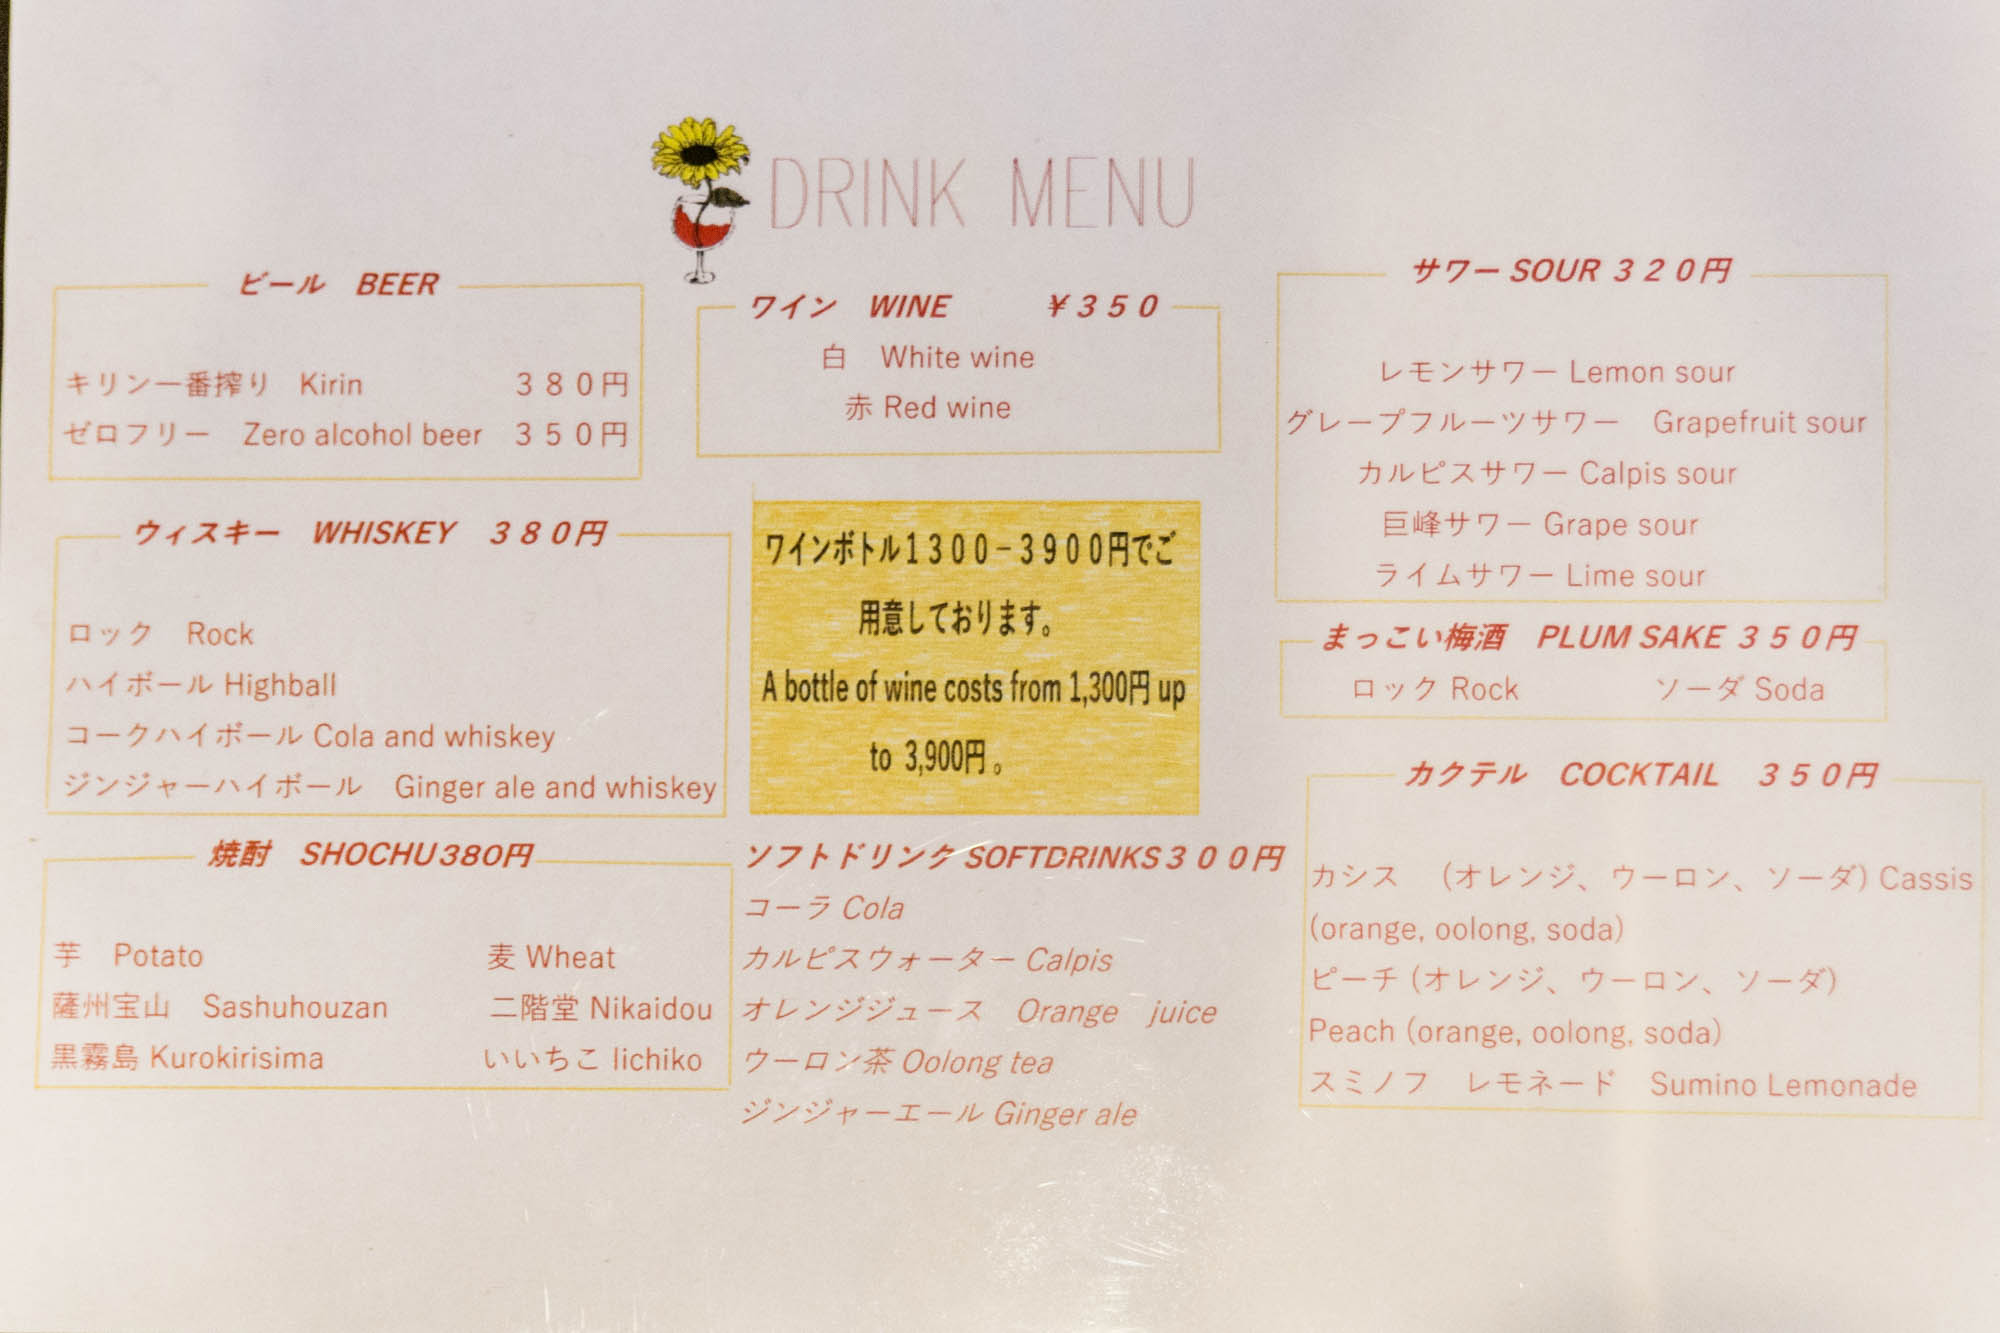 DRINK MENU
ビール　BEER
キリン一番搾り　Kirin　３８０円
ゼロフリー　Zero alcohol beer　３５０円
ウィスキー　WHISKEY　３８０円
ロック　Rock
ハイボール Highball
コークハイボール Cola and whiskey
ジンジャーハイボール　Ginger ale and whiskey
焼酎　SHOCHU380円
芋　Potato　麦 Wheat
薩州宝山　Sashuhouzan　二階堂 Nikaidou
黒霧島 Kurokirisima　いいちこ Iichiko
ワイン　WINE　￥３５０
白　White wine
赤 Red wine
ワインボトル１３００－３９００円でご
用意しております。
A bottle of wine costs from 1,300円 up
to 3,900円 。
ソフトドリンク SOFTDRINKS３００円
コーラ Cola
カルピスウォーター Calpis
オレンジジュース　Orange　juice
ウーロン茶 Oolong tea
ジンジャーエール Ginger ale
サワー SOUR ３２０円
レモンサワー Lemon sour
グレープフルーツサワー　Grapefruit sour
カルピスサワー Calpis sour
巨峰サワー Grape sour
ライムサワー Lime sour
まっこい梅酒　PLUM SAKE ３５０円
ロック Rock　ソーダ Soda
カクテル　COCKTAIL　３５０円
カシス　（オレンジ、ウーロン、ソーダ) Cassis
(orange, oolong, soda)
ピーチ (オレンジ、ウーロン、ソーダ)
Peach (orange, oolong, soda)
スミノフ　レモネード　Sumino Lemonade